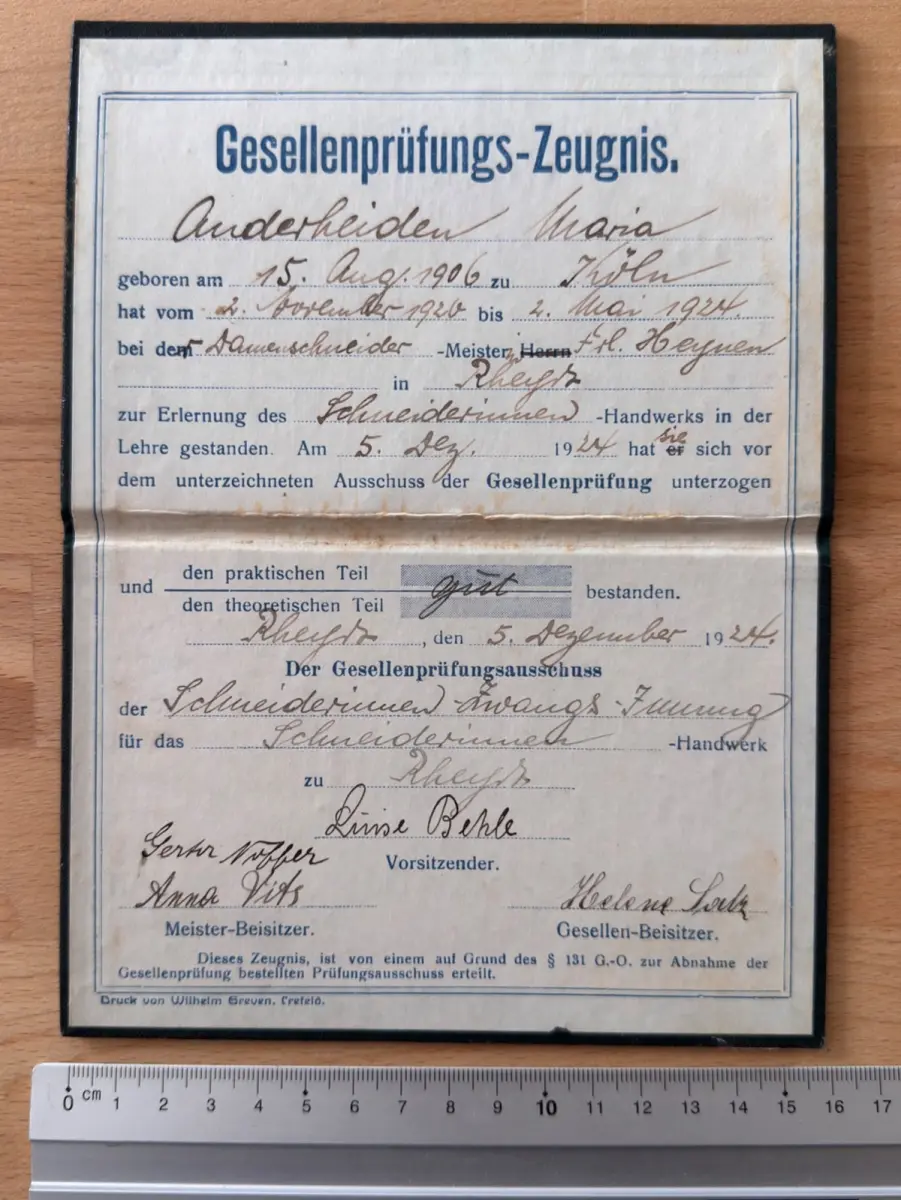 Gesellenprüfungs-Zeugnis.
Anderheiden Maria
geboren am 15. Aug. 1906 zu Köln
hat vom 2. November 1920 bis 2. Mai 1924.
bei der Damenschneider -Meister Herrn Frl. Heynen
in Rheydt
zur Erlernung des Schneiderinnen -Handwerks in der
Lehre gestanden. Am 5. Dez. 1924 hat er sie sich vor
dem unterzeichneten Ausschuss der Gesellenprüfung unterzogen
und den praktischen Teil
den theoretischen Teil gut bestanden.
Rheydt, den 5. Dezember 1924.
Der Gesellenprüfungsausschuss
der Schneiderinnen-Zwangs-Innung
für das Schneiderinnen -Handwerk
zu Rheydt
Luise Behle
Vorsitzender.
Anna Vits
Helene
Meister-Beisitzer.
Gesellen-Beisitzer.
Dieses Zeugnis, ist von einem auf Grund des § 131 G.-O. zur Abnahme der
Gesellenprüfung bestellten Prüfungsausschuss erteilt.
Druck von Wilhelm Greven, Crefeld.
0 cm 1 2 3 4 5 6 7 8 9 10 11 12 13 14 15 16 17